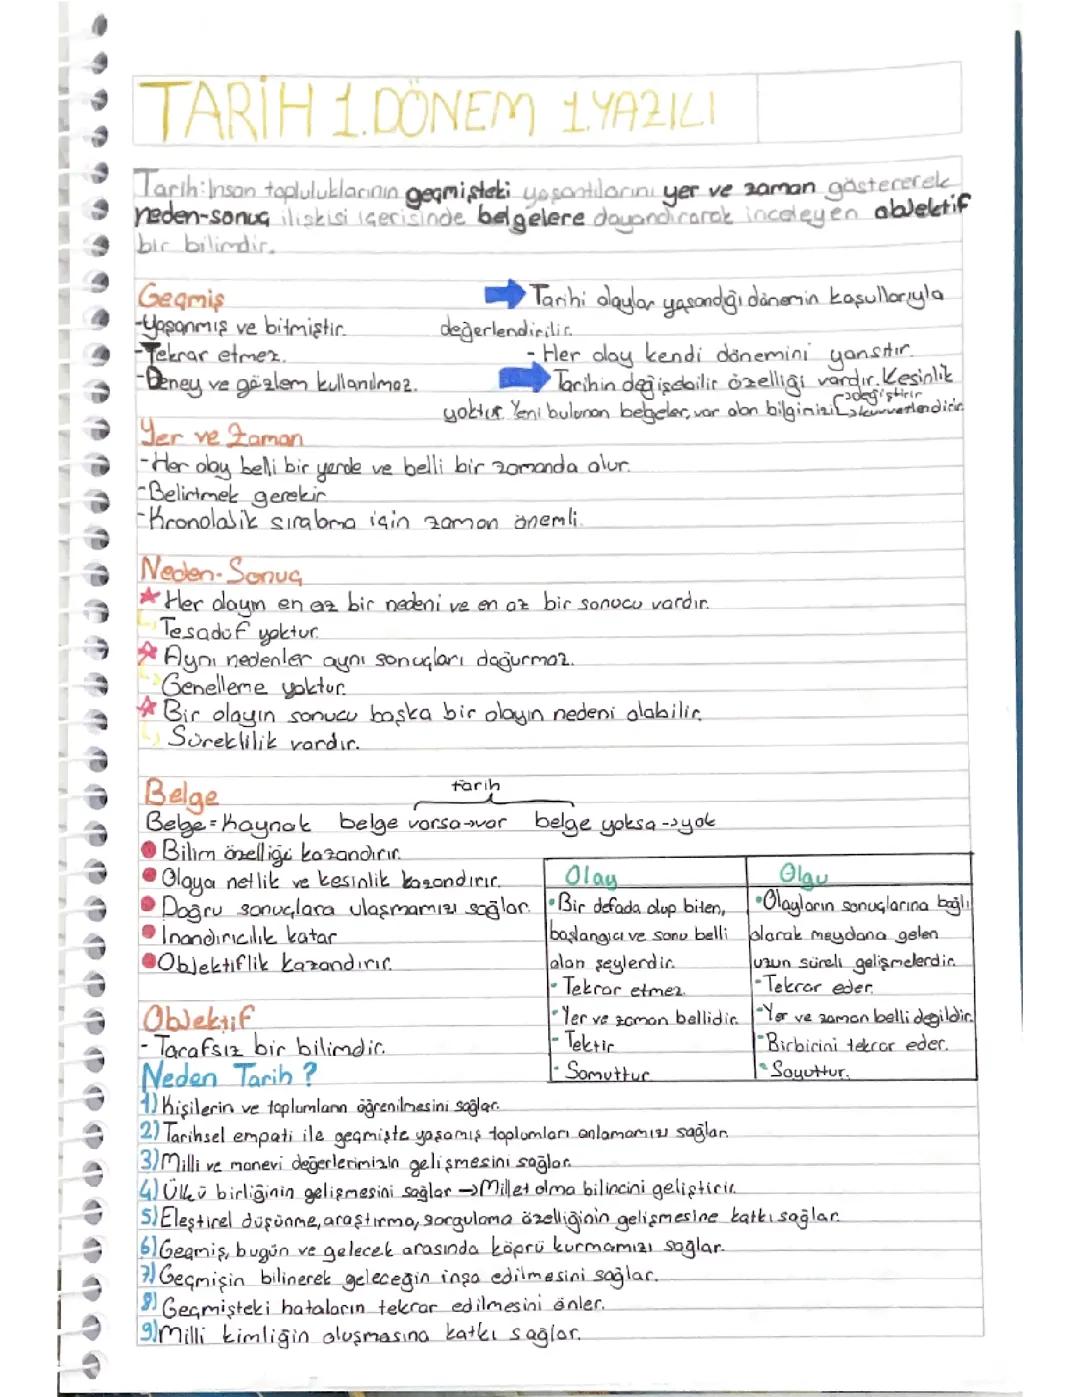 TARİH 1.DÖNEM 1.YAZILI
Tarih: İnsan topluluklarının geçmişteki yaşantılarını yer ve zaman göstererek
neden-sonuç ilişkisi içerisinde belgelere dayandırarak inceleyen objektif
bir bilimdir.
Geçmiş
-Yaşanmış ve bitmiştir.
-Tekrar etmez.
-Deney ve gözlem kullanılmaz.
Tarihi olaylar yaşandığı dönemin koşullarıyla
değerlendirilir.
- Her olay kendi dönemini yansıtır.
Tarihin değişebilir özelliği vardır. Kesinlik
yoktur. Yeni bulunan belgeler, var olan bilginizi
→değiştirir
→kuvvetlendirir
Yer ve Zaman
-Her olay belli bir yerde ve belli bir zamanda olur.
-Belirtmek gerekir
-Kronolojik sıralama için zaman önemli.
Neden-Sonuç
Her olayın en az bir nedeni ve en az bir sonucu vardır.
Tesadüf yoktur.
Aynı nedenler aynı sonuçları doğurmaz.
Genelleme yoktur.
Bir olayın sonucu başka bir olayın nedeni olabilir.
Süreklilik vardır.
Belge
tarih
Belge=Kaynak belge varsa→var belge yoksa→yok
Bilim özelliği kazandırır.
Olaya netlik ve kesinlik kazandırır.
Doğru sonuçlara ulaşmamızı sağlar.
İnandırıcılık katar
Objektiflik kazandırır.
Olay
•Bir defada olup biten,
başlangıcı ve sonu belli
olan şeylerdir.
• Tekrar etmez.
•Yer ve zaman bellidir.
• Tektir
• Somuttur
Olgu
•Olayların sonuçlarına bağlı
olarak meydana gelen
uzun süreli gelişmelerdir.
•Tekrar eder.
•Yer ve zaman belli değildir.
•Birbirini tekrar eder.
•Soyuttur.
Objektif
- Tarafsız bir bilimdir.
Neden Tarih?
1) Kişilerin ve toplumların öğrenilmesini sağlar.
2) Tarihsel empati ile geçmişte yaşamış toplumları anlamamızı sağlar.
3) Milli ve manevi değerlerimizin gelişmesini sağlar.
4) Ülkü birliğinin gelişmesini sağlar →Millet olma bilincini geliştirir.
5) Eleştirel düşünme, araştırma, sorgulama özelliğinin gelişmesine katkı sağlar.
6) Geçmiş, bugün ve gelecek arasında köprü kurmamızı sağlar.
7) Geçmişin bilinerek geleceğin inşa edilmesini sağlar.
8) Geçmişteki hataların tekrar edilmesini önler.
9) Milli kimliğin oluşmasına katkı sağlar.